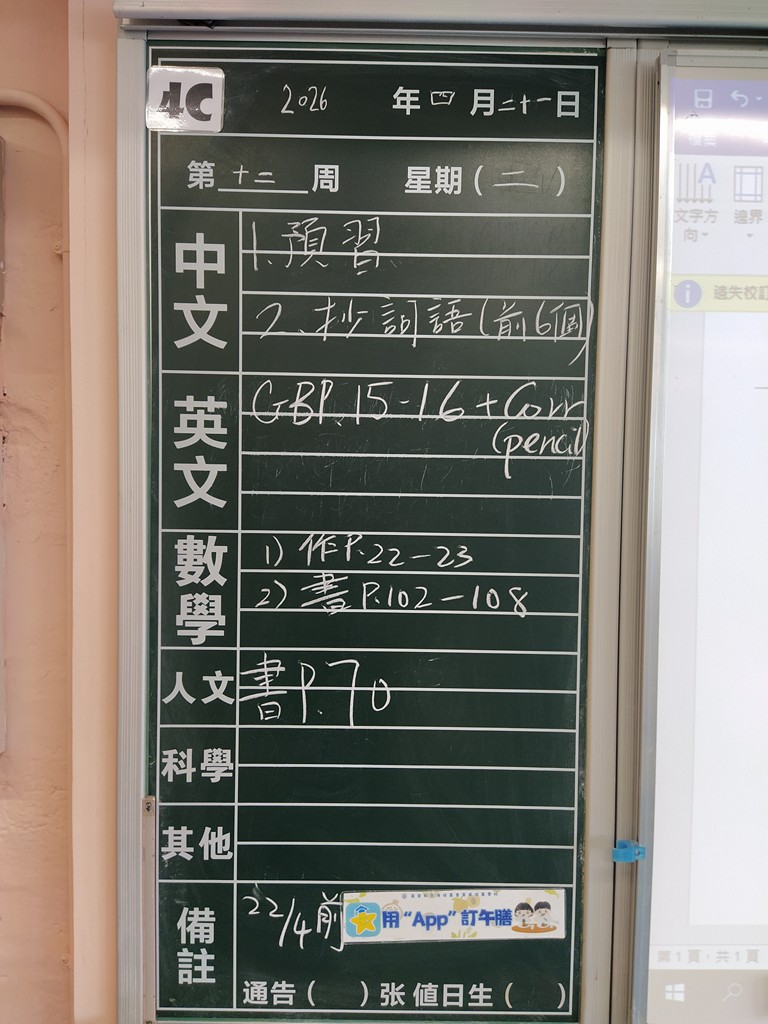 4C
2026 年 四 月 二十一 日
第 十二 周 星期 ( 二 )
中文
1. 預習
2. 抄詞語(前6個)
英文
GB P.15-16 + Corr
(pencil)
數學
1) 作P.22-23
2) 書P.102-108
人文
書P.70
科學
其他
備註
22/4前
用 “App” 訂午膳
通告 ( ) 张 值日生 ( )
文字方向
邊界
遺失校訂
第 1 頁，共 1 頁